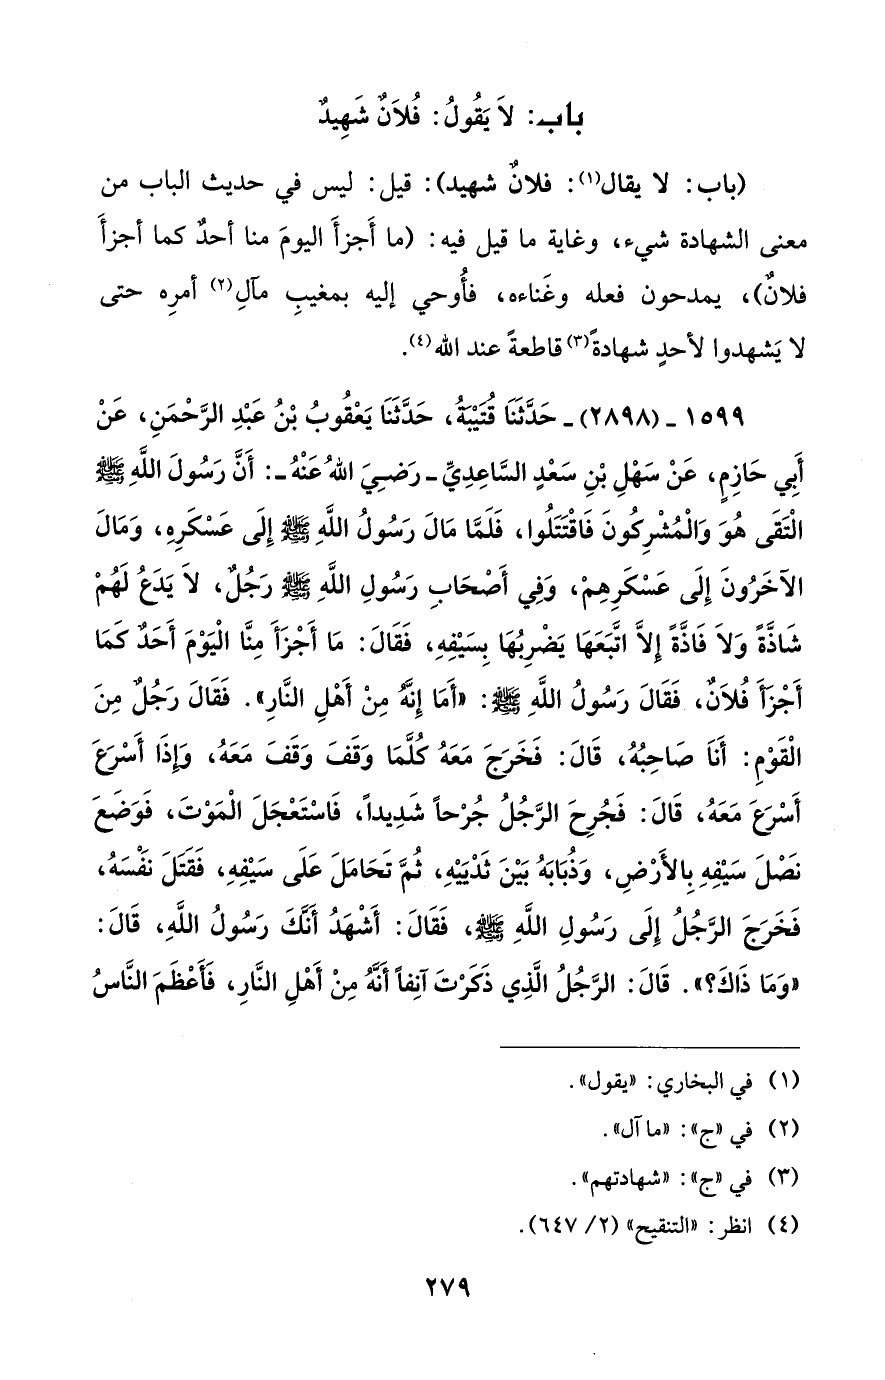 باب: لاَ يَقُولُ: فُلاَنٌ شَهِيدٌ
(باب: لا يقال(١): فلانٌ شهيد): قيل: ليس في حديث الباب من
معنى الشهادة شيء، وغاية ما قيل فيه: (ما أَجزأَ اليومَ منا أحدٌ كما أجزأَ
فلانٌ)، يمدحون فعله وغَناءه، فأُوحي إليه بمغيبِ مآلِ(٢) أمرِه حتى
لا يَشهدوا لأحدٍ شهادةً(٣) قاطعةً عند الله(٤).
١٥٩٩ ـ (٢٨٩٨) ـ حَدَّثَنَا قُتَيْبَةُ، حَدَّثَنَا يَعْقُوبُ بْنُ عَبْدِ الرَّحْمَنِ، عَنْ
أَبِي حَازِمٍ، عَنْ سَهْلِ بْنِ سَعْدٍ السَّاعِدِيِّ ـ رَضِيَ اللهُ عَنْهُ ـ: أَنَّ رَسُولَ اللَّهِ ﷺ
الْتَقَى هُوَ وَالْمُشْرِكُونَ فَاقْتَتَلُوا، فَلَمَّا مَالَ رَسُولُ اللَّهِ ﷺ إِلَى عَسْكَرِهِ، وَمَالَ
الآخَرُونَ إِلَى عَسْكَرِهِمْ، وَفِي أَصْحَابِ رَسُولِ اللَّهِ ﷺ رَجُلٌ، لاَ يَدَعُ لَهُمْ
شَاذَّةً وَلاَ فَاذَّةً إِلاَّ اتَّبَعَهَا يَضْرِبُهَا بِسَيْفِهِ، فَقَالَ: مَا أَجْزَأَ مِنَّا الْيَوْمَ أَحَدٌ كَمَا
أَجْزَأَ فُلاَنٌ، فَقَالَ رَسُولُ اللَّهِ ﷺ: «أَمَا إِنَّهُ مِنْ أَهْلِ النَّارِ». فَقَالَ رَجُلٌ مِنَ
الْقَوْمِ: أَنَا صَاحِبُهُ، قَالَ: فَخَرَجَ مَعَهُ كُلَّمَا وَقَفَ وَقَفَ مَعَهُ، وَإِذَا أَسْرَعَ
أَسْرَعَ مَعَهُ، قَالَ: فَجُرِحَ الرَّجُلُ جُرْحاً شَدِيداً، فَاسْتَعْجَلَ الْمَوْتَ، فَوَضَعَ
نَصْلَ سَيْفِهِ بِالأَرْضِ، وَذُبَابَهُ بَيْنَ ثَدْيَيْهِ، ثُمَّ تَحَامَلَ عَلَى سَيْفِهِ، فَقَتَلَ نَفْسَهُ،
فَخَرَجَ الرَّجُلُ إِلَى رَسُولِ اللَّهِ ﷺ، فَقَالَ: أَشْهَدُ أَنَّكَ رَسُولُ اللَّهِ، قَالَ:
«وَمَا ذَاكَ؟». قَالَ: الرَّجُلُ الَّذِي ذَكَرْتَ آنِفاً أَنَّهُ مِنْ أَهْلِ النَّارِ، فَأَعْظَمَ النَّاسُ
(١) في البخاري: «يقول».
(٢) في «ج»: «ما آل».
(٣) في «ج»: «شهادتهم».
(٤) انظر: «التنقيح» (٢/ ٦٤٧).
٢٧٩